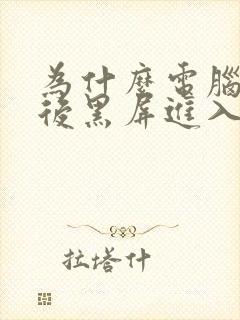 為什麼電腦
後黑屏進入
拉塔什